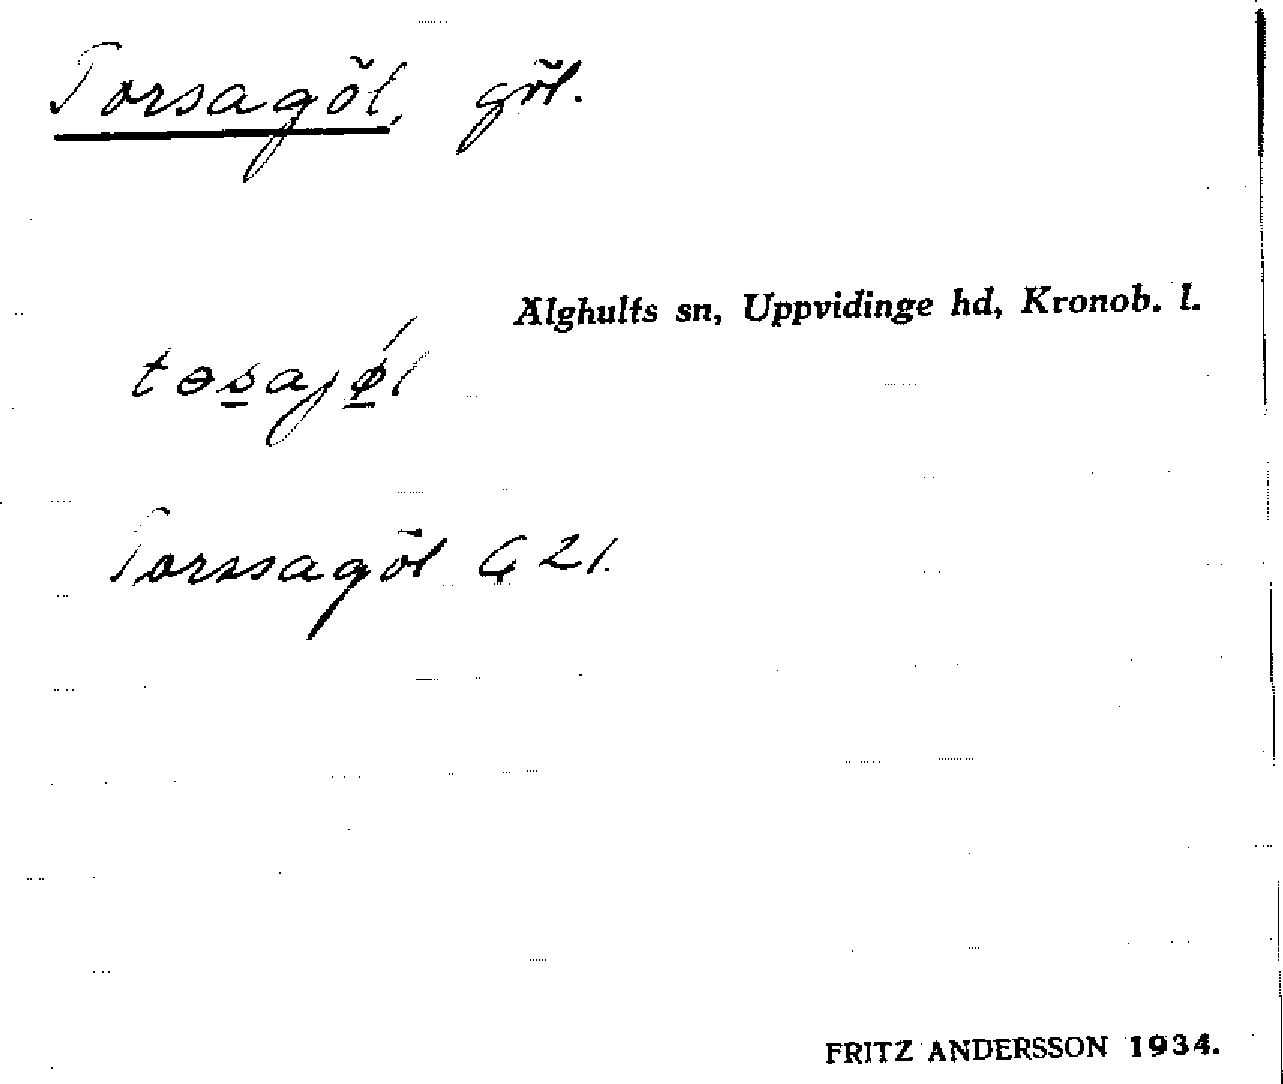 Torsagöl, göl.
Älghults sn, Uppvidinge hd, Kronob. l.
Torssagöl G 21.
FRITZ ANDERSSON 1934.